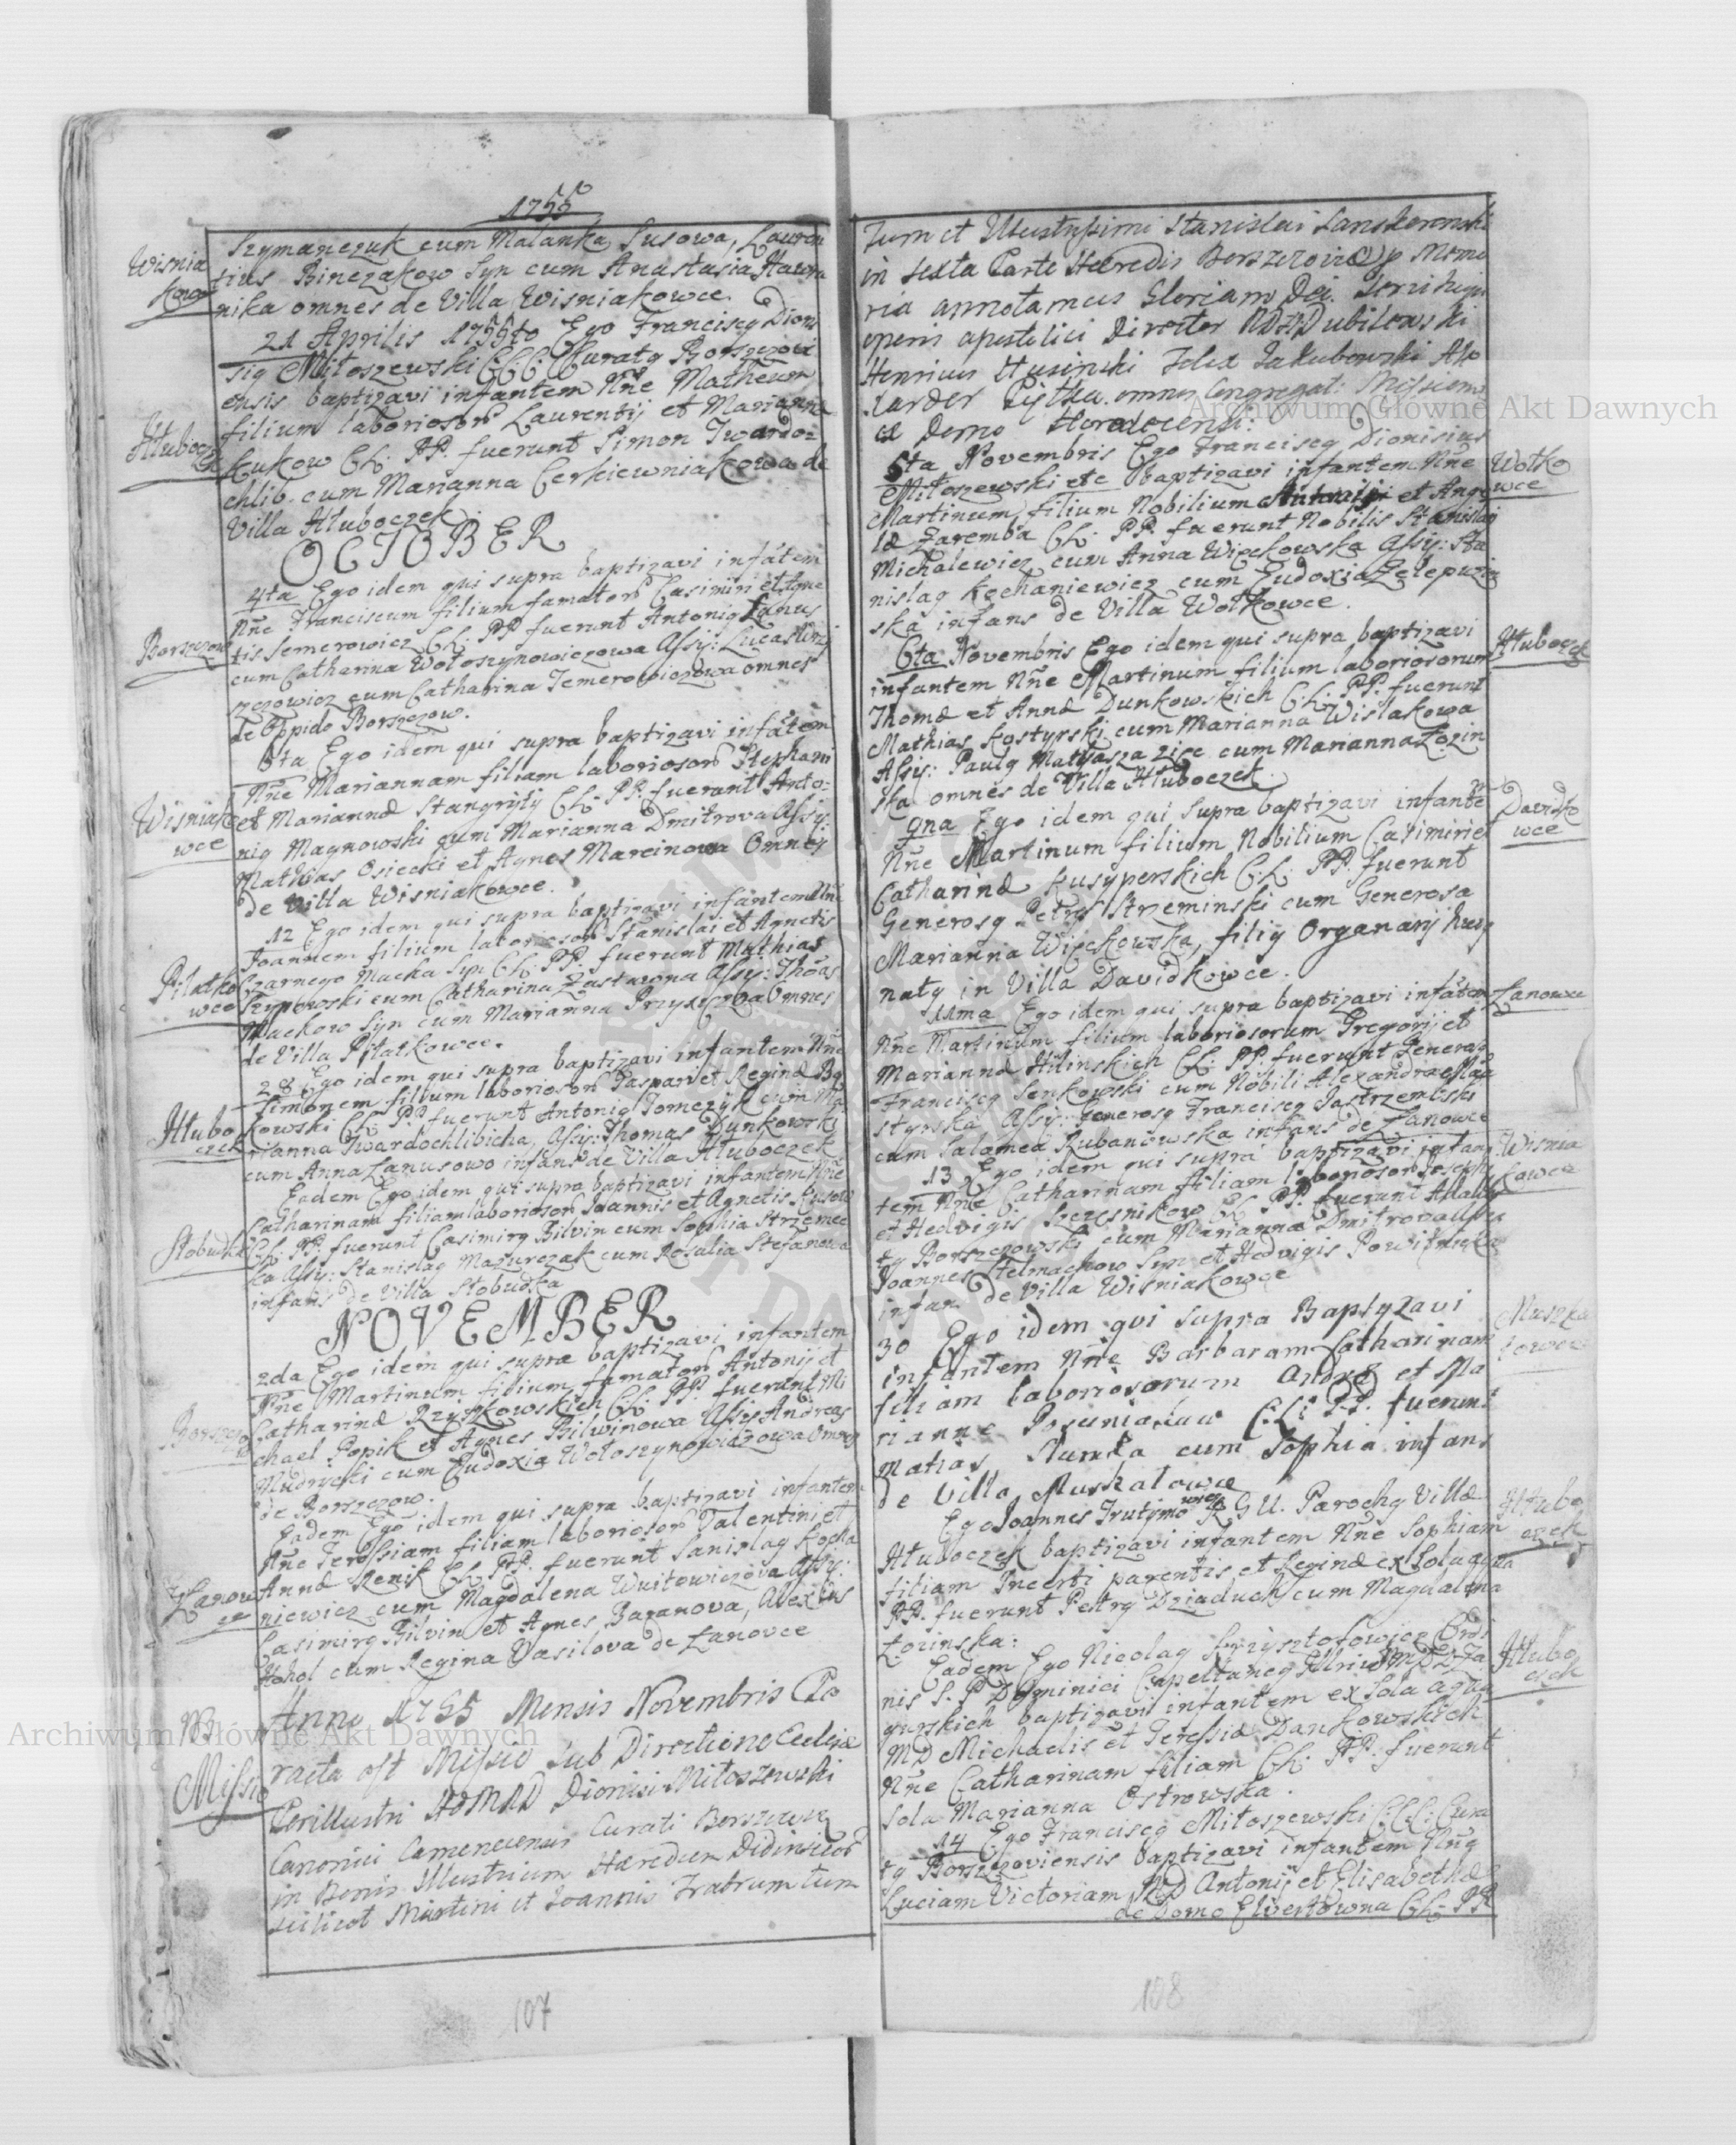 1755
Wisnia
kowce
Szymanczuk cum Malanka Susowa, Lauren
tius Binczakow Syn cum Anastasia Hawro
nika omnes de Villa Wisniakowce.
21 Aprilis 1755to Ego Franciscg Dioni
sig Miłoszewski CCC Curatg Borszczovi
ensis baptizavi infantem Nñe Matheum
Hłuboczek
filium laboriosor Laurentij et Marianna
kukow CL. PP. fuerunt Simon Twardo=
chlib cum Marianna Cerkiewniakowa de
Villa Hłuboczek.
OCTOBER
4ta Ego idem qui supra baptizavi infãtem
Nñe Franciscum filium famator Casimiri et Agne
Borszczow
tis Semerowicz CL. PP fuerunt Antonig Łanus
cum Catharina Wołoszynowiczowa Assis: Lucas
szczowicz cum Catharina Semerowiczowa omnes
de Oppido Borszczow.
6ta Ego idem qui supra baptizavi infãtem
Nñe Mariannam filiam laboriosor Stephani
Wisniako
wce
et Mariannæ Stangryty CL. PP. fuerunt Anto=
nig Magnowski cum Marianna Dmitrova Assis:
Mathias Osiecki et Agnes Marcinowa Omnes
de Villa Wisniakowce.
12 Ego idem qui supra baptizavi infantem Nñe
Joannem filium laboriosor Stanislai et Agnetis
Piłatko
wce
Czarnego Macka Syn CL. PP. fuerunt Mathias
cum Catharina Zastawna Assis: Thõas
Mackow Syn cum Marianna Omnes
de Villa Piłatkowce.
28 Ego idem qui supra baptizavi infantem Nñe
Simonem filium laboriosor Gaspari et Reginæ Bą
Hłubo
czek
kowski CL. PP. fuerunt Antonig Tomczyk cum Ma
rianna Twardochlibicha, Assis: Thomas Dunkowski
cum Anna Łanusowo infans de Villa Hłuboczek
Eadem Ego idem qui supra baptizavi infantem Nñe
Catharinam filiam laboriosor Joannis et Agnetis
Słobudka
CL. PP. fuerunt Casimirg Bilvin cum Sophia Strzemec
ka Assis: Stanislag Mazurczak cum Rosalia Stefanowa
infans de Villa Słobudka
NOVEMBER
2da Ego idem qui supra baptizavi infantem
Nñe Martinum filium famator Antonij et
Borszczo
w
Catharinæ Rzyszkowskich CL. PP. fuerunt Mi
chael Popik et Agnes Bilwinowa Assis: Andreas
Mudrycki cum Eudoxia Wołoszynowiczowa Omnes
de Borszczow.
Eadem Ego idem qui supra baptizavi infantem
Nñe Teressiam filiam laboriosor Valentini et
Łanow
ce
Annæ Renik CL. PP. fuerunt Sanislag Kocha
niewicz cum Magdalena Wuitowiczova Assis:
Casimirg Bilvin et Agnes Baranova, Alexius
Hohol cum Regina Vasilova de Łanovce
NB
Missio
Anno 1755 Mensis Novembris Pe
racta est Missio sub Directione Ecclesiæ
Perillustri Dionisi Miłoszewski
Canonici Camenecensis Curati Borszczoviens
in Bonis Illustrium Hæredum Didinscior
scilicet Martini et Joannis Fratrum tum
107
tum et Illustrissimi Stanislai Lanskorenski
in sexta Parte Hæredis Borszczovi Op memo
ria annotamus Gloriam Dei. Servi hujus
operis apostolici Director RDP Dubilowski
Henricus Husinski Felix Jakubowski Ale
xander Pystka omnes Congregat: Missiona
a Domo Horodecensi:
5ta Novembris Ego Franciscg Dionisius
Miłoszewski etc baptizavi infantem Nñe
Wołko
wce
Martinum filium Nobilium et Ange
læ Zaremba CL. PP. fuerunt Nobilis Stanislaus
Michalewicz cum Anna Więckowska Assis: Sta
nislag Kochaniewicz cum Eudoxia Zelepuzin
ska infans de Villa Wołkowce.
6ta Novembris Ego idem qui supra baptizavi
Hłuboczek
infantem Nñe Martinum filium laboriosorum
Thomæ et Annæ Dunkowskich C.L. PP. fuerunt
Mathias Kostyrski cum Marianna Wislakowa
Assis: Paulg Mathasza zięc cum Marianna Łozin
ska omnes de Villa Hłuboczek.
9na Ego idem qui supra baptizavi infantẽ
Davidko
wce
Nñe Martinum filium Nobilium Casimiri et
Catharinæ Kusyperskich C.L. PP. fuerunt
Generosg Petrg Strzeminski cum Generosa
Marianna Więckowska, filiy Organarij hujg
natg in Villa Davidkowce.
11ma Ego idem qui supra baptizavi infãtem
Łanowce
Nñe Martinum filium laboriosorum Gregorij et
Mariannæ Hilinskich CL. PP. fuerunt Generosg
Franciscg Senkowski cum Nobili Alexandra Maju
styrska Assis: Generosg Franciscg Jastrzembski
cum Salomea Rubanowska infans de Łanowce
13 Ego idem qui supra baptizavi infan
Wisnia
kowce
tem Nñe Catharinam filiam laboriosor Josephi
et Hedvigis Szczesnikow CL. PP. fuerunt Albal
tg Borszczowski cum Marianna Dmitrova
Joannes Stelmachow Syn et Hedvigis
infans de Villa Wisniakowce
30 Ego idem qui supra Baptyzavi
Muszka
towce
infantem Nñe Barbaram Catharinam
filiam laboriosorum Andreæ et Ma
rianne C.L: P.P. fuerunt
Matias cum Sophia infans
de Villa Muszkatowce
Ego Joannes Trutymowicz R G U. Parochg Villæ
Hłubo
czek
Hłuboczek baptizavi infantem Nñe Sophiam
filiam Incerti parentis et Reginæ ex sola aqua
PP. fuerunt Petrg Dziaduch cum Magdalena
Łozinska:
Eadem Ego Nicolag Krzysztofowicz Ordi
Hłubo
czek
nis S. P Dominici Capellaneg Za
gurskich baptizavi infantem ex sola aqua
MD Michaelis et Teressiæ Dankowskich
Nñe Catharinam filiam CL. PP. fuerunt
sola Marianna Ostrowska.
14 Ego Franciscg Miłoszewski C.C.C. Cura
tg Borszczoviensis baptizavi infantem Nñe
Luciam Victoriam MD Antonij et Elisabethæ
de Domo Elvertowna CL. PP
108
Archiwum Główne Akt Dawnych
Archiwum Główne Akt Dawnych